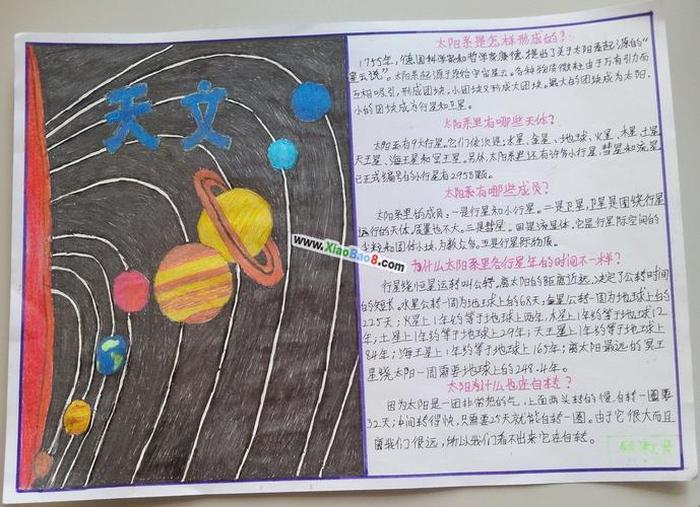 天文
www.XiaoBao8.com
太阳系是怎样形成的?
1755年,德国科学家和哲学家康德,提出了关于太阳系起源的“
星云说”。太阳系起源于原始宇宙星云。各种物质微粒由于万有引力而
互相吸引,形成团块,小团块又形成大团块。最大的团块成为太阳,
小的团块成为行星和卫星。
太阳系里有哪些天体?
太阳系有9大行星。它们依次是:水星、金星、地球、火星、木星、土星
天王星、海王星和冥王星。另外,太阳系里还有许多小行星,彗星和流星
已正式编号的小行星有2958颗。
太阳系有哪些成员?
太阳系里的成员,一是行星和小行星。二是卫星,卫星是围绕行星
运行的天体,质量也不大。三是彗星。四是流星体,它是行星际空间的
尘粒和固体小块,为数众多。五是行星际物质。
为什么太阳系里各行星年的时间不一样?
行星绕恒星运转叫公转。离太阳的距离远近,决定了公转时间
的短长。水星公转一周为地球上的68天;金星公转一周为地球上的
225天;火星上1年约等于地球上两年,木星上1年约等于地球12
年;土星上1年约等于地球上29年;天王星上1年约等于地球上
84年;海王星上1年约等于地球上165年;离太阳最远的冥王
星绕太阳一周需要地球上的248.4年。
太阳为什么也在自转?
因为太阳是一团非常热的气,上面两头转的慢,自转一圈要
32天;中间转得快,只需要25天就能自转一圈。由于它很大而且
离我们很远,所以我们看不出来它在自转。